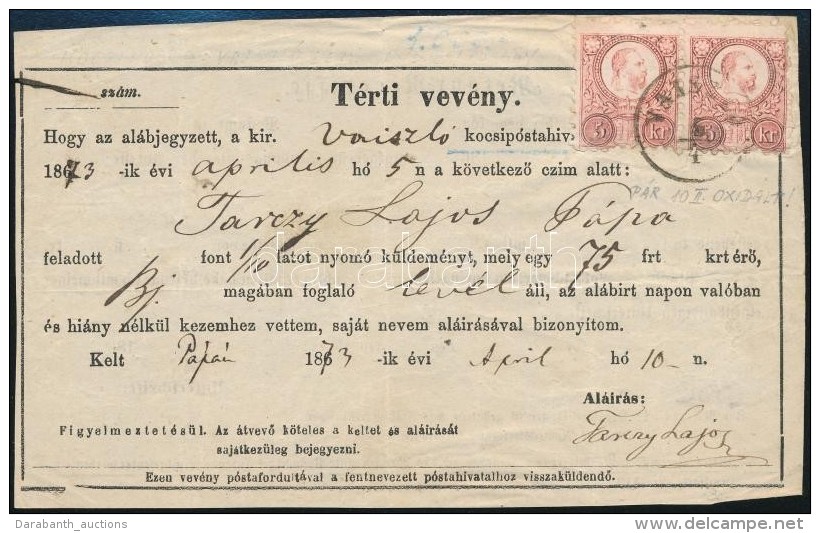 szám.
Térti vevény.
5 kr 5 kr
Hogy az alábjegyzett, a kir. Vaiszló kocsipóstahiv.
1873-ik évi április hó 5 n a következő czim alatt:
PÁR 10 II. OXIDÁLT!
Tarczy Lajos Pápa
feladott font 1/10 latot nyomó küldeményt, mely egy 75 frt krt érő,
Bj. magában foglaló levél áll, az alábirt napon valóban
és hiány nélkül kezemhez vettem, saját nevem aláirásával bizonyítom.
Kelt Pápán 1873 -ik évi April hó 10 - n.
Aláirás:
Tarczy Lajos
Figyelmeztetésül. Az átvevő köteles a keltet és aláirását
sajátkezüleg bejegyezni.
Ezen vevény póstafordultával a fentnevezett póstahivatalhoz visszaküldendő.
darabanth
Darabanth_auctions
delcampe.net